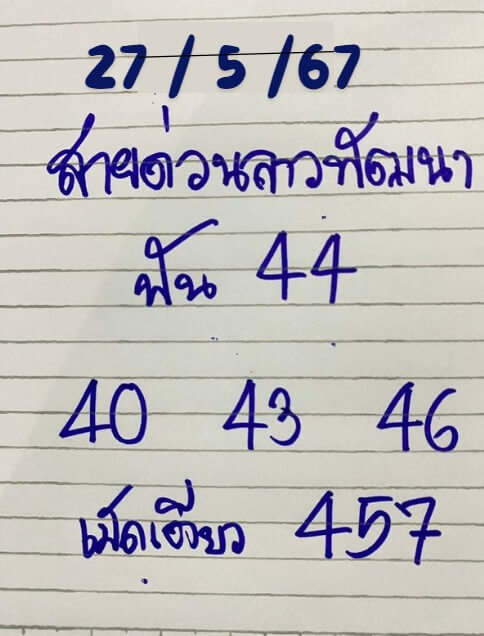 27 / 5 / 67
สายด่วนลาวพัฒนา
ฟัน 44
40 43 46
เม็ดเดียว 457